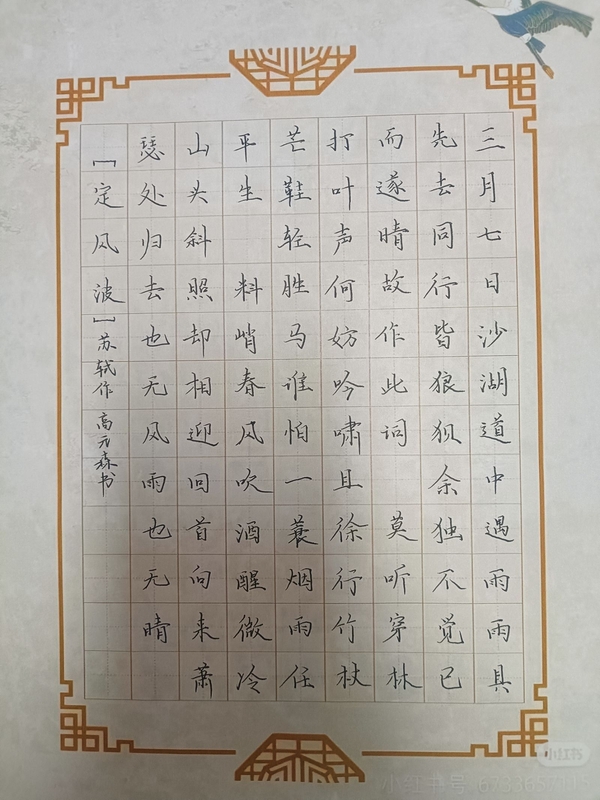 三月七日沙湖道中遇雨雨具
先去同行皆狼狈余独不觉已
而遂晴故作此词 莫听穿林
打叶声何妨吟啸且徐行竹杖
芒鞋轻胜马谁怕一蓑烟雨任
平生 料峭春风吹酒醒微冷
山头斜照却相迎回首向来萧
瑟处归去也无风雨也无晴
【定风波】苏轼作 高元森书
小红书
小红书号